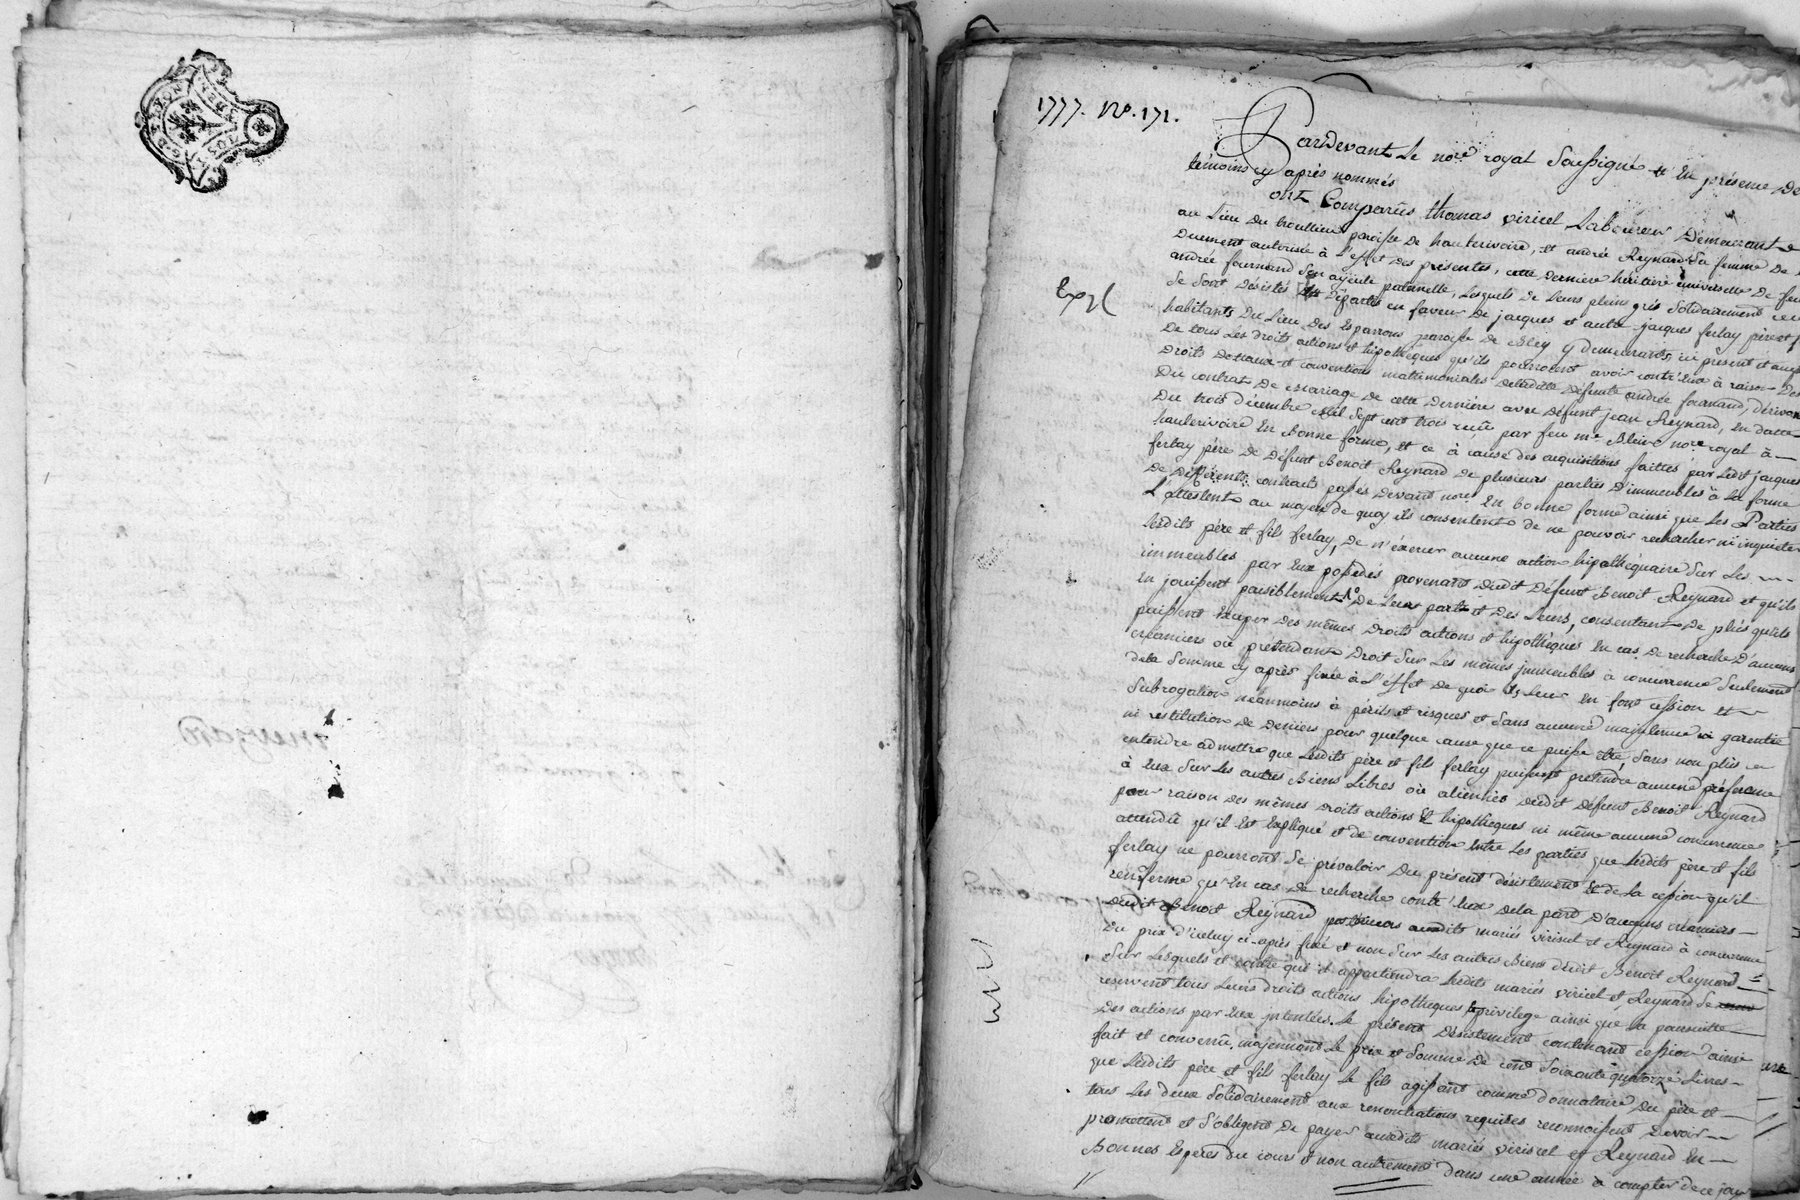 G. DE LYON
1777. No. 171.
Expé
Pardevant Le nore royal Soussigné et En présence De
témoins cy après nommés
ont Comparûs thomas viricel Laboureur Demeurant
au Lieu Du paroisse De hauterivoire, et andrée Reynard Sa femme De
Duement autorisée à L'effet Des présentes, cette Derniere héritiere universelle De feu
andrée fournand Son ayeule paternelle, Lesquels De Leurs plein grés Solidairement
Se Sont Désistés et Départis en faveur De jacques et autre jacques ferlay père et
habitants Du Lieu Des Esparrons paroisse De y Demeurants, ici présent et
De tous Les Droits actions et hipothèques qu'ils pourroient avoir contr'Eux à raison Des
Droits Dotaux et conventions matrimoniales De laditte Défunte andrée fournand, Dérivant
Du contrat De Mariage De cette Derniere avec Défunt jean Reynard, En datte
Du trois Décembre Mil Sept cent trois reçû par feu me nore royal à
hauterivoire En Bonne forme, et ce à cause des acquisitions faittes par Ledt jacques
ferlay père De Défunt Benoit Reynard De plusieurs parties D'immeubles à La forme
De Différents contrats passés Devant nore En bonne forme ainsi que Les Parties
L'attestent au moyen de quoy ils consentent De ne pouvoir rechercher ni inquieter
Lesdits père et fils ferlay, De n'éxercer aucune action hipothéquaire Sur Les
immeubles par Eux possédés provenants Dudit Défunt Benoit Reynard et qu'ils
En jouissent paisiblement De Leur part et Des Leurs, consentant De plus qu'ils
puissent Exciper Des mêmes Droits actions et hipothèques En cas De recherche D'aucuns
créanciers où prétendants Droit Sur Les mêmes immeubles à concurrence Seulement
dela Somme cy après fixée à L'effet De quoi ils Leur En font cession et
Subrogation néanmoins à périls et risques et Sans aucune maintenue ni garentie
ni restitution De Deniers pour quelque cause que ce puisse être, Sans non plus
entendre admettre que Lesdits père et fils ferlay puissent prétendre aucune préférence
à Eux Sur Les autres Biens Libres où aliénés Dudit Défunt Benoit Reynard
pour raison Des mêmes Droits actions Et hipothèques ni même aucune concurrence
attendû qu'il Est Expliqué et de convention Entre Les parties que Lesdits père et fils
ferlay ne pourront Se prévaloir Du présent Désistement Et De La cession qu'il
renferme qu'En cas De recherche contr'Eux dela part D'aucuns créanciers
Dudit Benoit Reynard audits mariés viricel et Reynard à concurrence
Du prix d'iceluy ci-après fixé et non Sur Les autres Biens Dudit Benoit Reynard
Sur Lesquels et contre qui il appartiendra Lesdits mariés viricel et Reynard Se
reservent tous Leurs droits actions hipothèques privilege ainsi que La poursuitte
Des actions par Eux intentées. Le présent Désistement contenant cession ainsi
fait et convenû, moyennant Le prix et Somme De Cent Soixante quatorze Livres
que Lesdits père et fils ferlay Le fils agissant comme Donnataire Du père et
tous Les deux Solidairement aux renonciations requises reconnoissent Devoir
promettent et S'obligent De payer auxdits mariés viricel et Reynard En
Bonnes Espèces Du cours et non autrement Dans une année à compter de ce jour